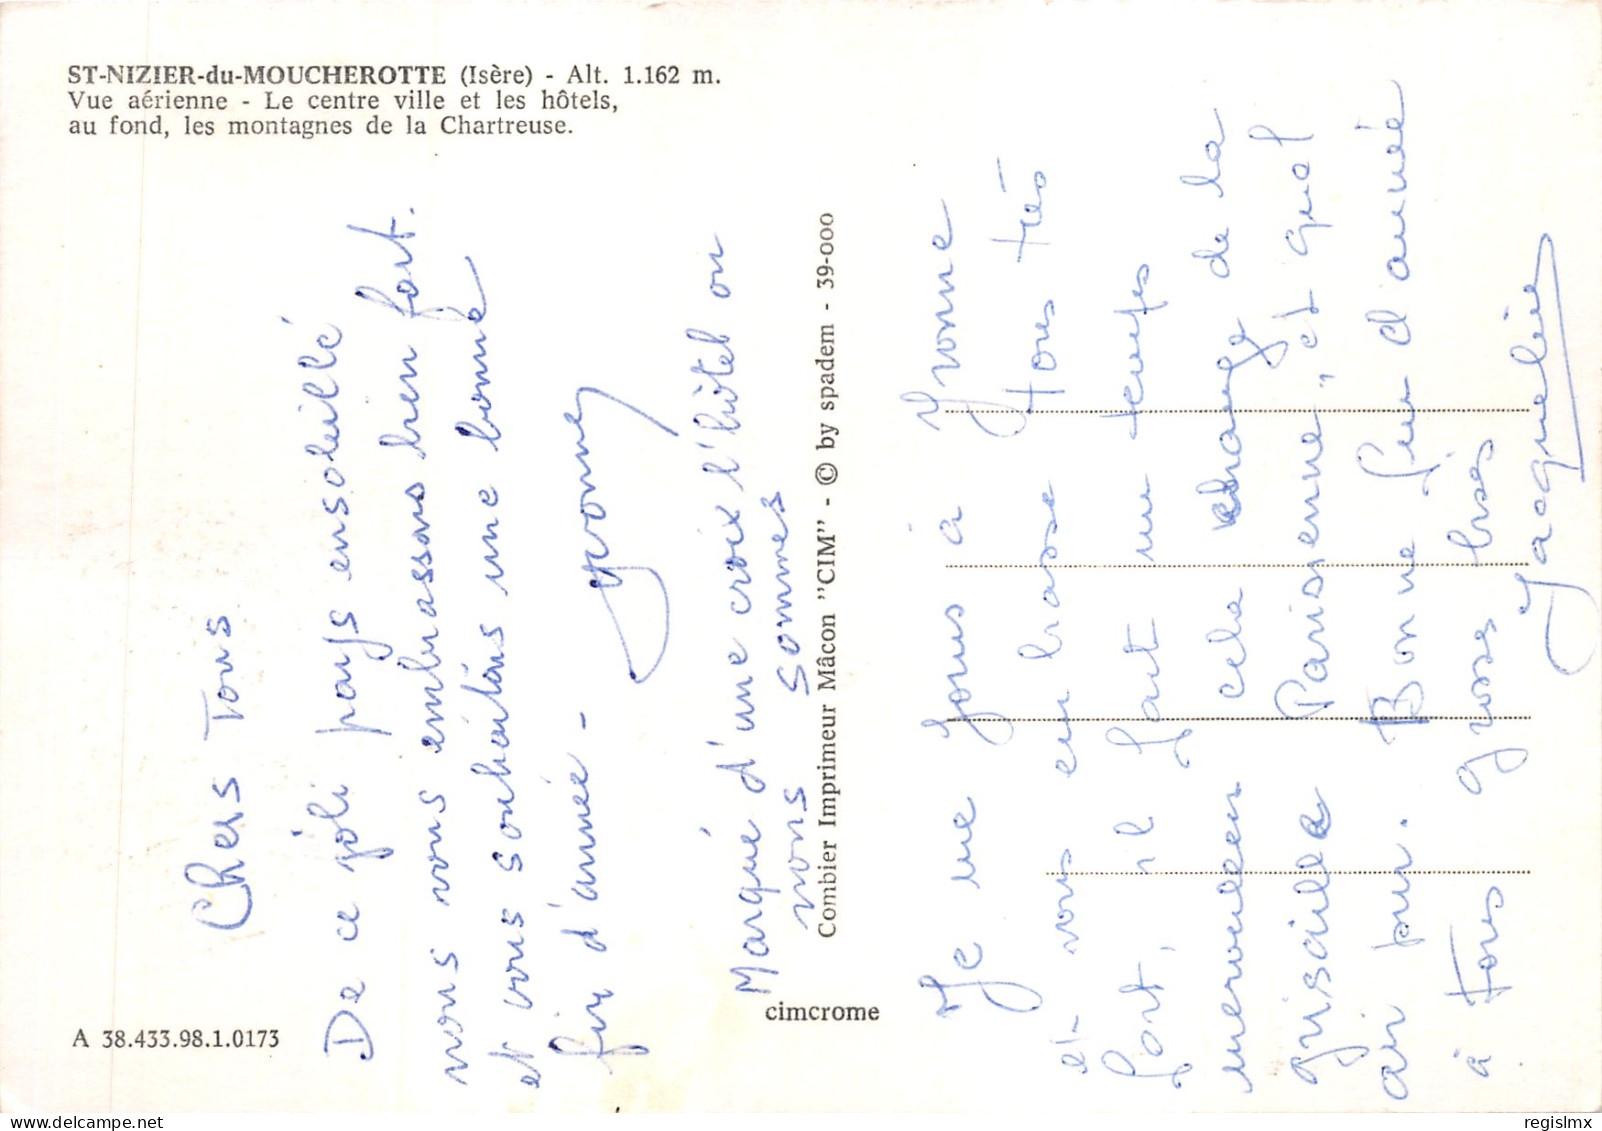 ST-NIZIER-du-MOUCHEROTTE (Isère) - Alt. 1.162 m.
Vue aérienne - Le centre ville et les hôtels,
au fond, les montagnes de la Chartreuse.
Chers Tous
De ce joli pays ensoleillé
nous vous embrassons bien fort.
et vous souhaitons une bonne
fin d'année -
Yvonne
Marqué d'une croix l'hôtel où
nous sommes
A 38.433.98.1.0173
cimcrome
Combier Imprimeur Mâcon "CIM" - © by spadem - 39-000
Je me jous à Yvonne
et vous embrasse tous très
fort, il fait un temps
merveilleux cela change de la
grisaille Parisienne, et quel
air pur. Bonne fin d'année
à Tous grosses bises
Jacqueline
regislmx